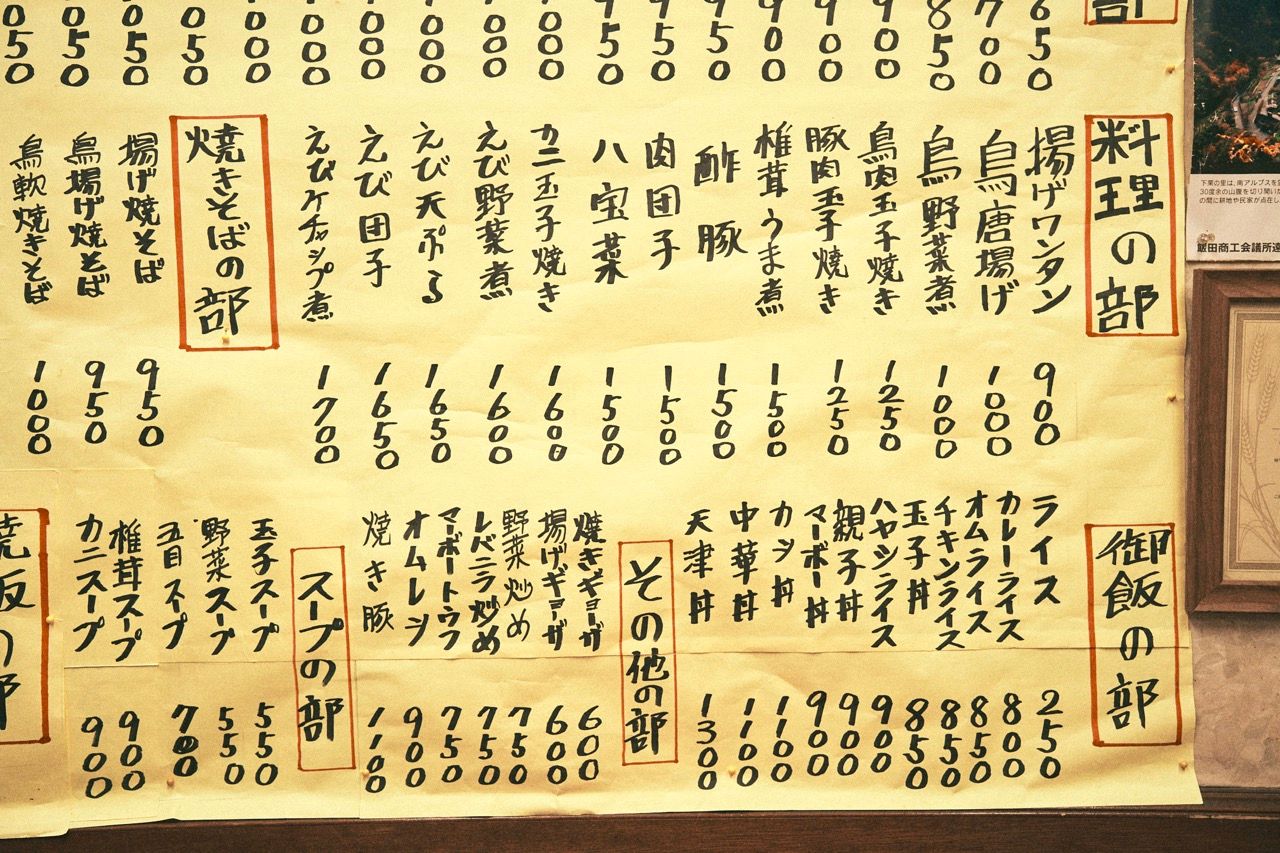 部
650
700
850
900
900
900
950
950
950
000
000
000
000
000
000
050
050
050
050
料理の部
揚げワンタン 900
鳥唐揚げ 1000
鳥野菜煮 1000
鳥肉玉子焼き 1250
豚肉玉子焼き 1250
椎茸うま煮 1500
酢豚 1500
肉団子 1500
八宝菜 1500
カニ玉子焼き 1600
えび野菜煮 1600
えび天ぷら 1650
えび団子 1650
えびケチャップ煮 1700
焼きそばの部
揚げ焼そば 950
鳥揚げ焼そば 950
鳥軟焼きそば 1000
御飯の部
ライス 250
カレーライス 800
オムライス 850
チキンライス 850
玉子丼 850
ハヤシライス 900
親子丼 900
マーボー丼 900
カツ丼 1100
中華丼 1100
天津丼 1300
その他の部
焼きギョーザ 600
揚げギョーザ 600
野菜炒め 750
レバニラ炒め 750
マーボートウフ 750
オムレツ 900
焼き豚 1100
スープの部
玉子スープ 550
野菜スープ 550
五目スープ 700
椎茸スープ 900
カニスープ 900
焼飯の部
下栗の里は、南アルプスを望
30度余の山腹を切り開いた
の間に耕地や民家が点在し
飯田商工会議所遠